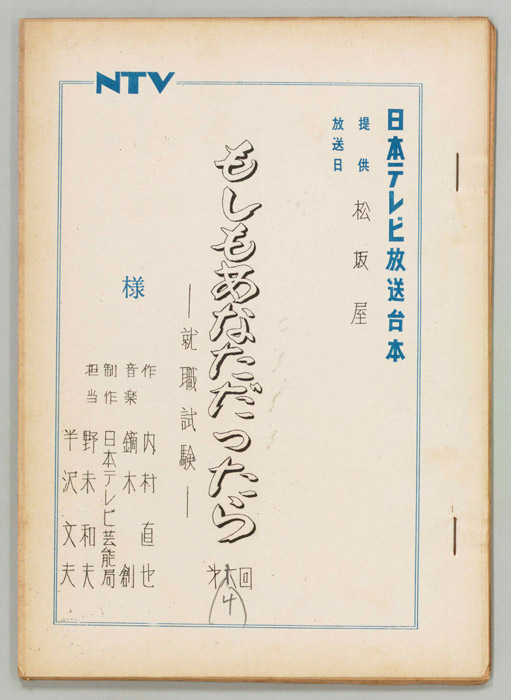 NTV
日本テレビ放送台本
提供 松坂屋
放送日
もしもあなただったら
―就職試験―
才 回
4
様
作 内村直也
音楽 鏑木創
制作 日本テレビ芸能局
担当 野末和夫
半沢文夫